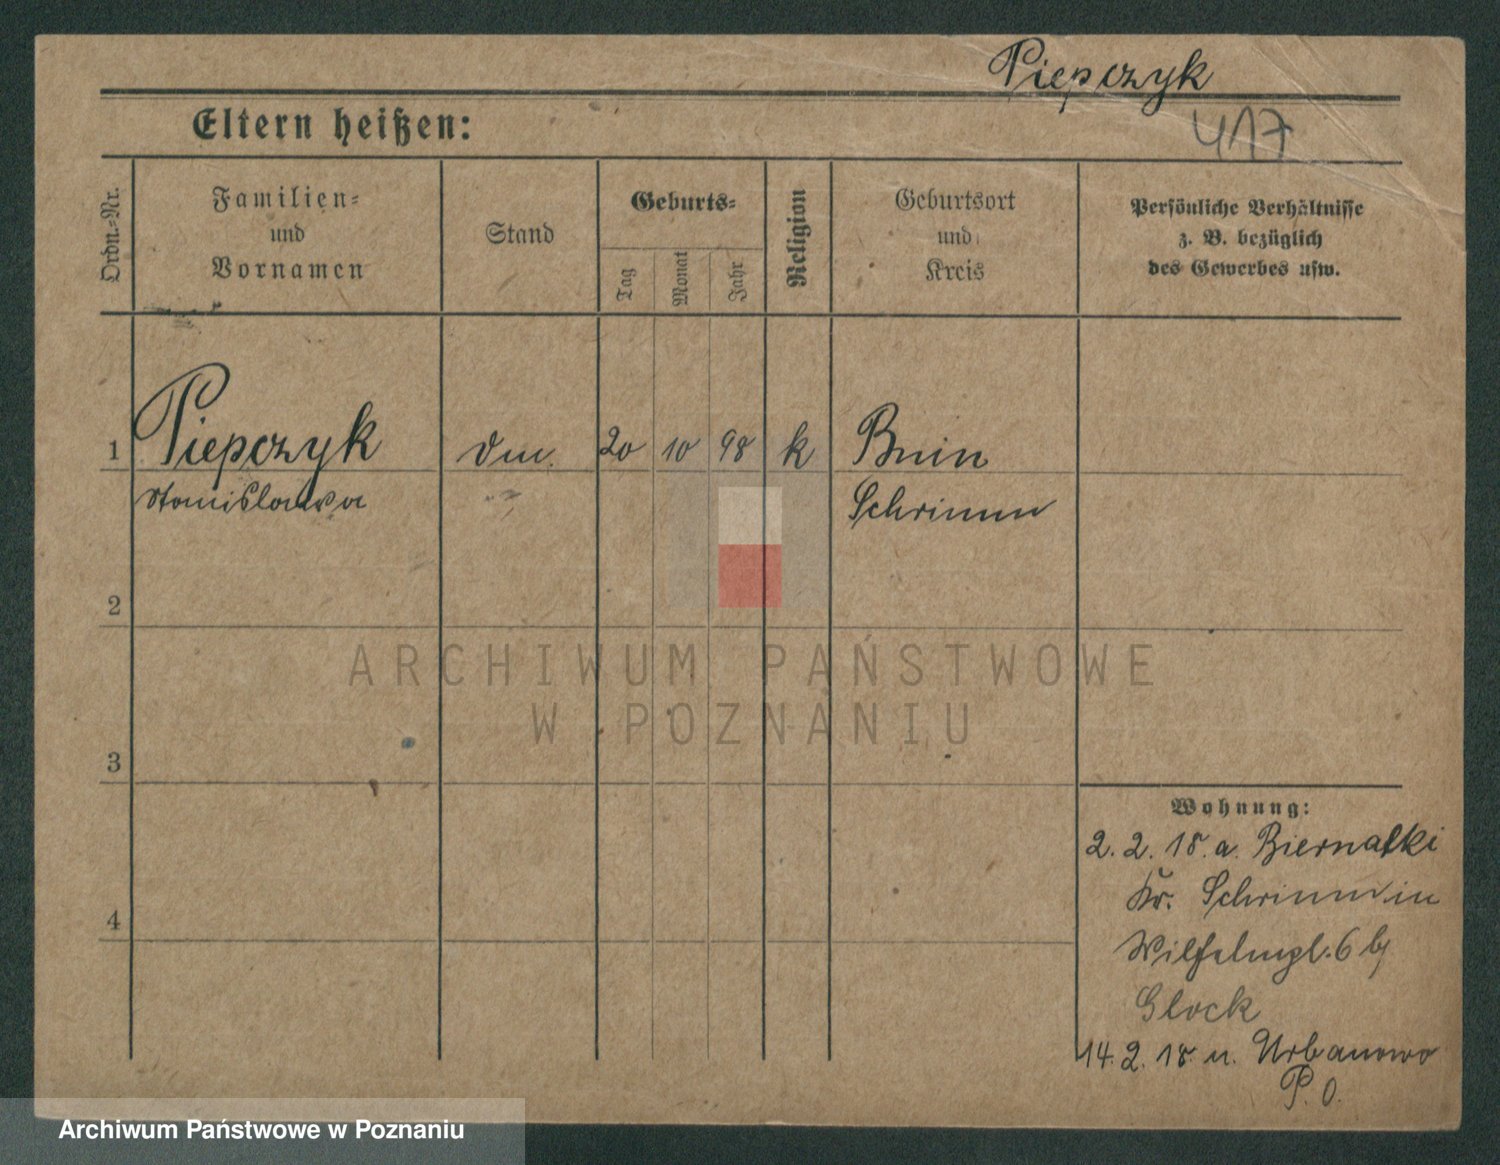 Piepczyk
417
Eltern heißen:
Ordn.-Nr.
Familien-
und
Vornamen
Stand
Geburts-
Tag
Monat
Jahr
Religion
Geburtsort
und
Kreis
Persönliche Verhältnisse
z. B. bezüglich
des Gewerbes usw.
1 Piepczyk Dm. 20 10 98 k Bnin
Stanislawa Schrimm
2
ARCHIWUM PAŃSTWOWE
W POZNANIU
3
4
Wohnung:
2. 2. 18. a. Biernatki
Kr. Schrimm in
Wilhelmpl. 6 b/
Glock
14. 2. 18. n. Urbanowo
P. O.
Archiwum Państwowe w Poznaniu